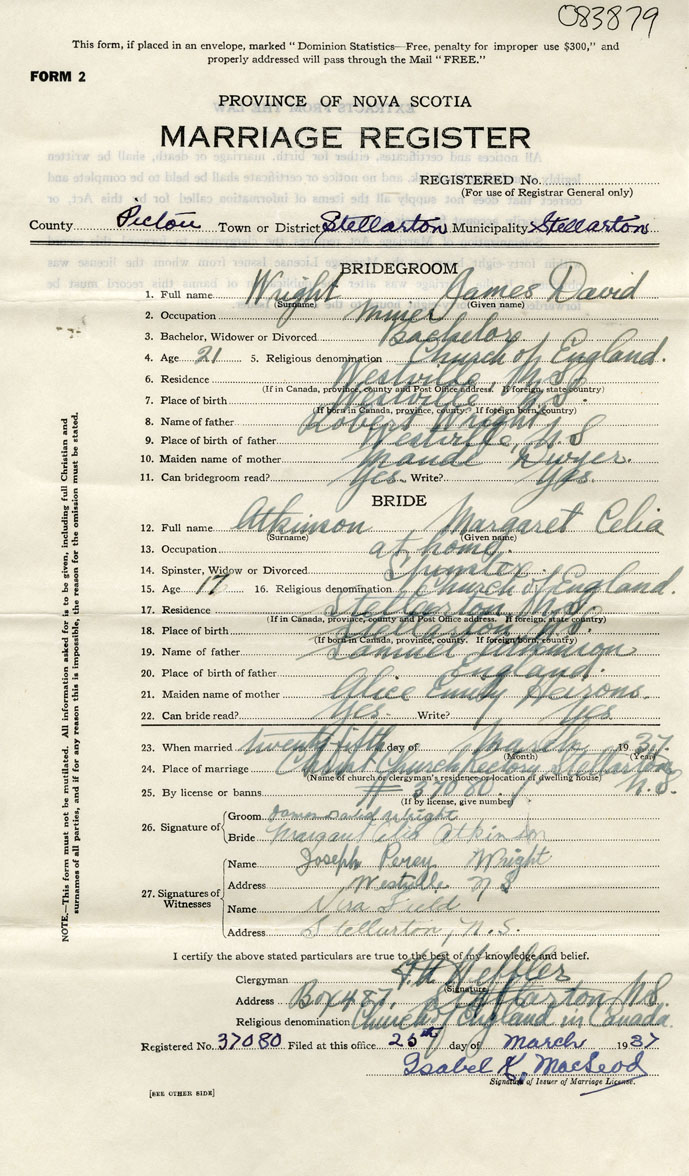 083879
This form, if placed in an envelope, marked "Dominion Statistics—Free, penalty for improper use $300," and
properly addressed will pass through the Mail "FREE."
FORM 2
PROVINCE OF NOVA SCOTIA
MARRIAGE REGISTER
REGISTERED No.
(For use of Registrar General only)
County Pictou Town or District Stellarton Municipality Stellarton
BRIDEGROOM
1. Full name Wright James David
(Surname) (Given name)
2. Occupation Miner
3. Bachelor, Widower or Divorced Bachelor
4. Age 21 5. Religious denomination Church of England.
6. Residence Westville, N.S.
(If in Canada, province, county and Post Office address. If foreign, state country)
7. Place of birth Westville, N.S.
(If born in Canada, province, county. If foreign born, country)
8. Name of father Robert Wright
9. Place of birth of father Westville, N.S
10. Maiden name of mother Maude Dwyer.
11. Can bridegroom read? Yes. Write? Yes.
BRIDE
12. Full name Atkinson Margaret Celia
(Surname) (Given name)
13. Occupation at home.
14. Spinster, Widow or Divorced Spinster
15. Age 17 16. Religious denomination Church of England.
17. Residence Stellarton N.S.
(If in Canada, province, county and Post Office address. If foreign, state country)
18. Place of birth Stellarton N.S.
(If born in Canada, province, county. If foreign born, country)
19. Name of father Samuel Atkinson
20. Place of birth of father England.
21. Maiden name of mother Alice Emily
22. Can bride read? Yes. Write? Yes.
23. When married twenty fifth day of March 1937.
(Month) (Year)
24. Place of marriage Christ Church Rectory Stellarton N.S.
(Name of church or clergyman's residence or location of dwelling house)
25. By license or banns # 37080.
(If by license, give number)
26. Signature of
Groom James David Wright
Bride Margaret Celia Atkinson
27. Signatures of Witnesses
Name Joseph Percy Wright
Address Westville N S
Name Field
Address Stellarton, N.S.
I certify the above stated particulars are true to the best of my knowledge and belief.
Clergyman
(Signature)
Address Box 487, Stellarton N.S.
Religious denomination Church of England in Canada.
Registered No. 37080 Filed at this office 25th day of March 1937
Isabel K. MacLeod
Signature of Issuer of Marriage License.
[SEE OTHER SIDE]
NOTE.—This form must not be mutilated. All information asked for is to be given, including full Christian and
surnames of all parties, and if for any reason this is impossible, the reason for the omission must be stated.